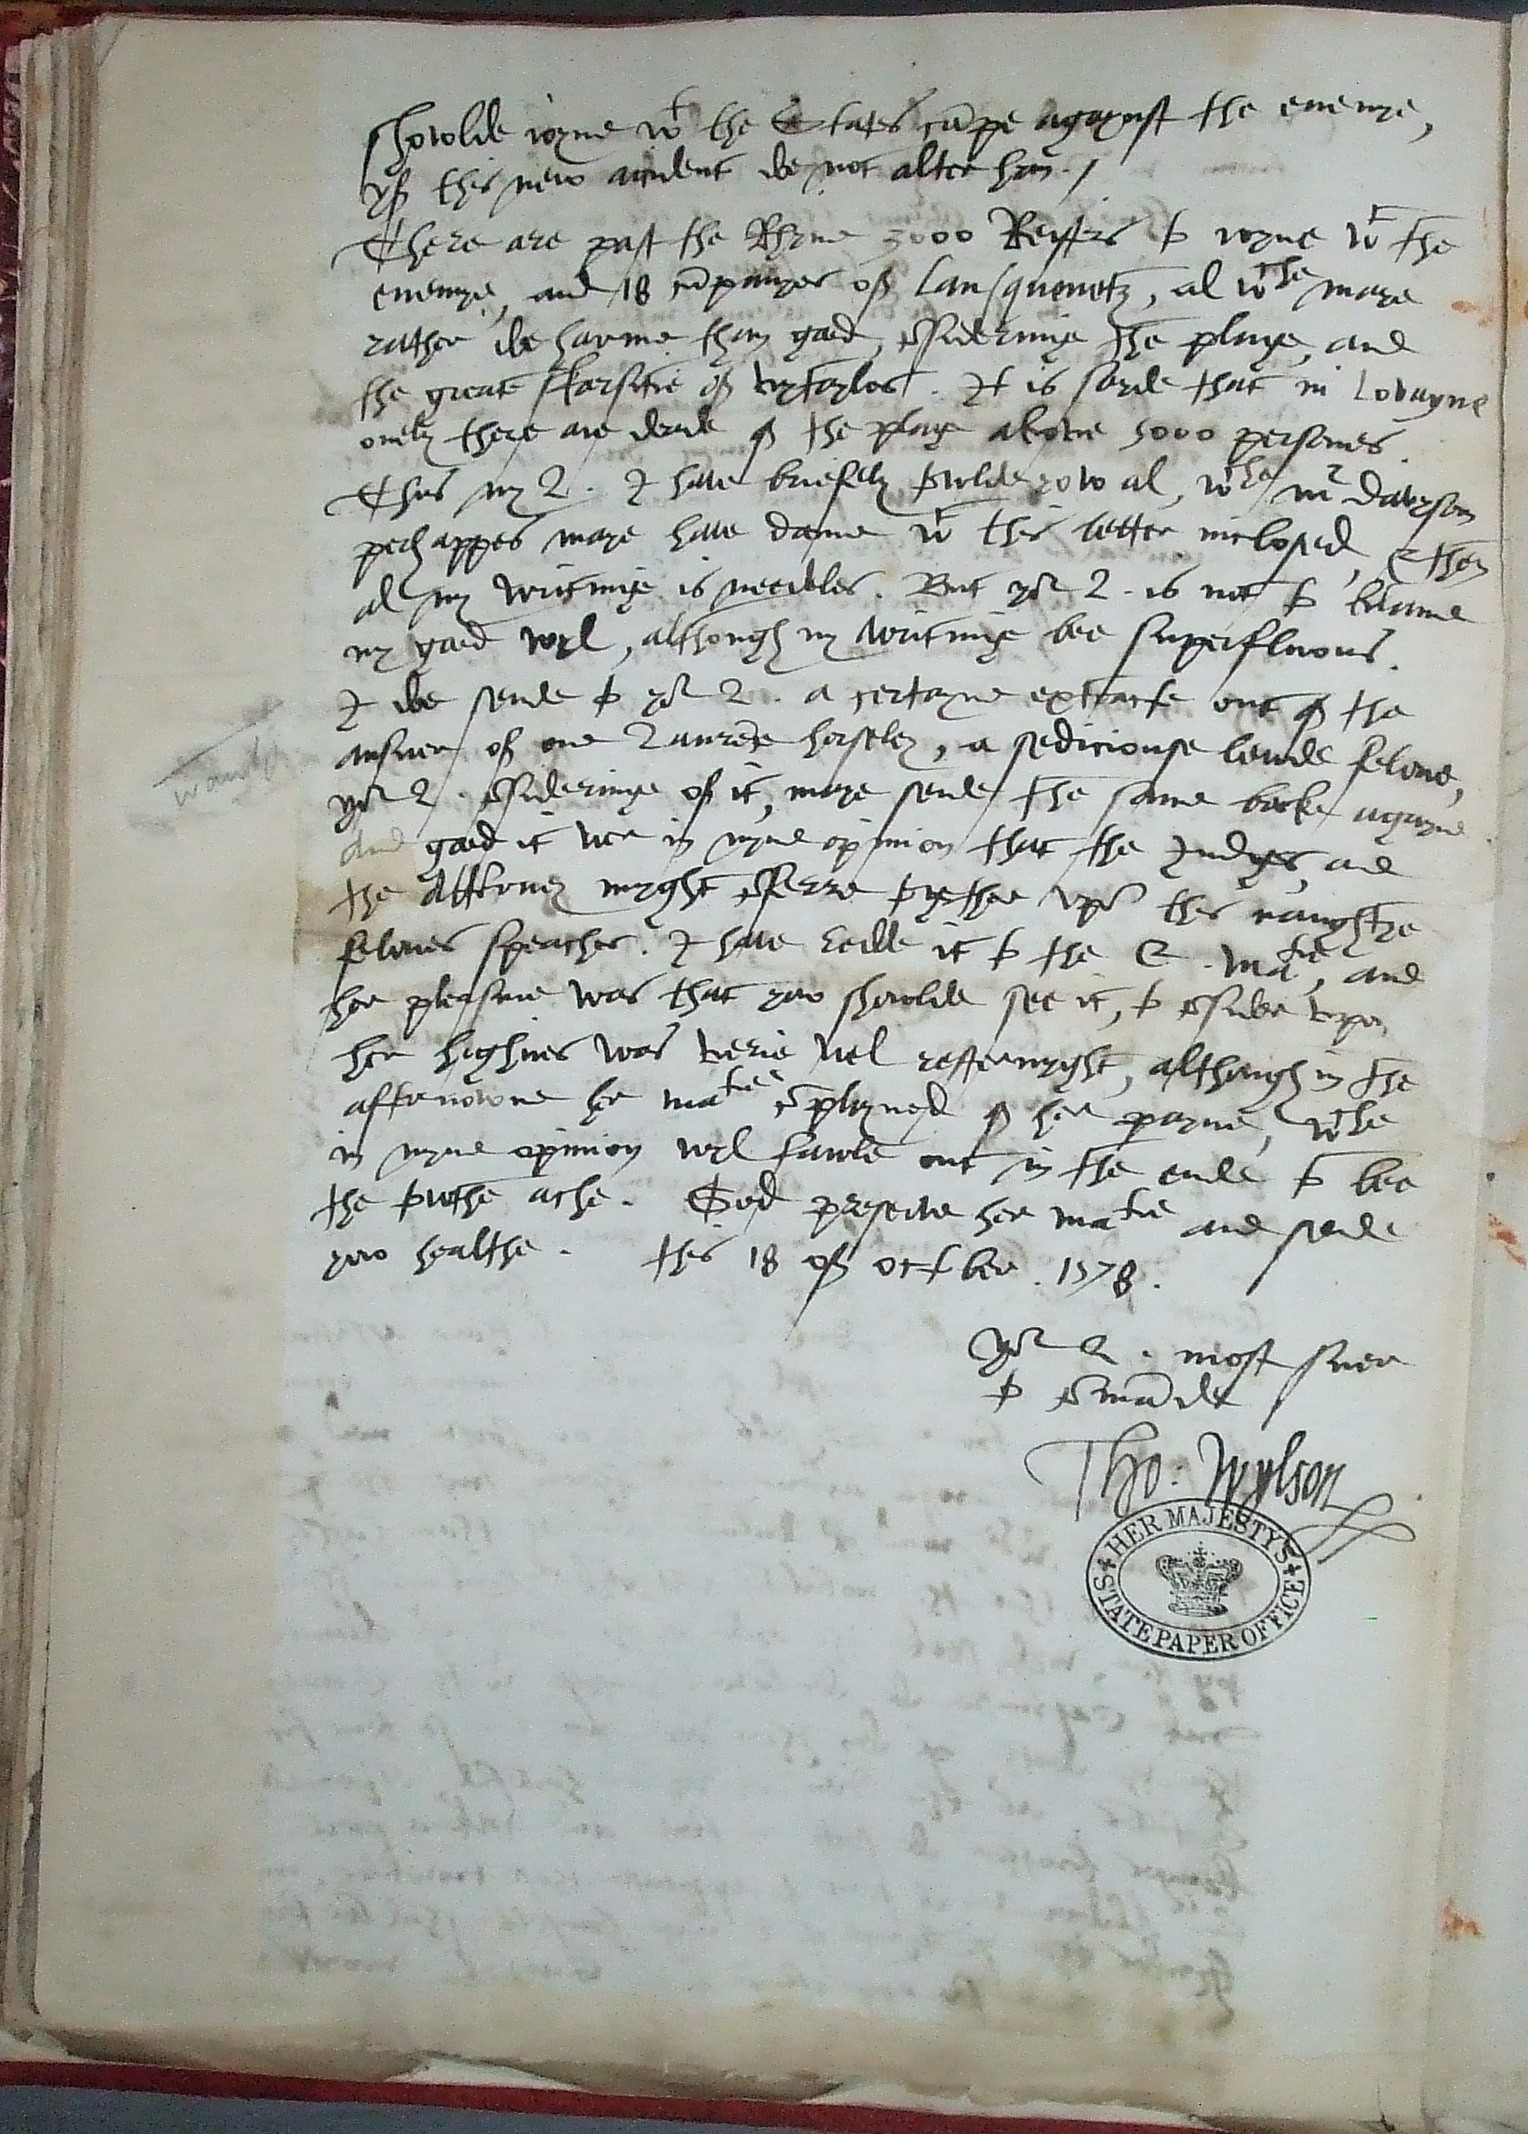 showlde ioyne wt the States cāpe agaynst the enemye,
yf this new accident do not alter him./
There are past the Rhyne 3000 Reisters to ioyne wt the
enemye, and 18 cōpanyes of Lansquenetz, al wche maye
rather do harme than good, cōsideringe the plage, and
the great skarsitie of vytayles. It is sayde that in Lovayne
onely there are deade of the plage above 5000 persones.
Thus my L. I have briefely towlde yow al, wche mr Davyson
perhappes maye have donne wt this letter inclosed, & then
al my writinge is needeles. But yor L. is not to blame
my good wyl, although my writinge bee superfluous.
I do sende to yor L. a certayne extracte out of the
answer of one Laurēce horseley, a sediciouse leude felowe,
yor L. cōsideringe of it, maye sende the same backe agayne
and good it wer in myne opinion that the Judges, and
the Attorney myght cōferre together vpō this naughtye
felowes speaches. I have redde it to the Q. matie, and
her pleasure was that yow showlde see it, to cōsider vpon
her highnes was verie wel yesternyght, although in the
afternowne her matie cōplayned of her payne, wche
in myne opinion wyl fawle out in the ende to bee
the towthe ache. God preserve her matie and sende
yow healthe. this 18 of october. 1578.
yor L. most suer
to cōmāde
Tho: Wylson
HER MAJESTY'S STATE PAPER OFFICE